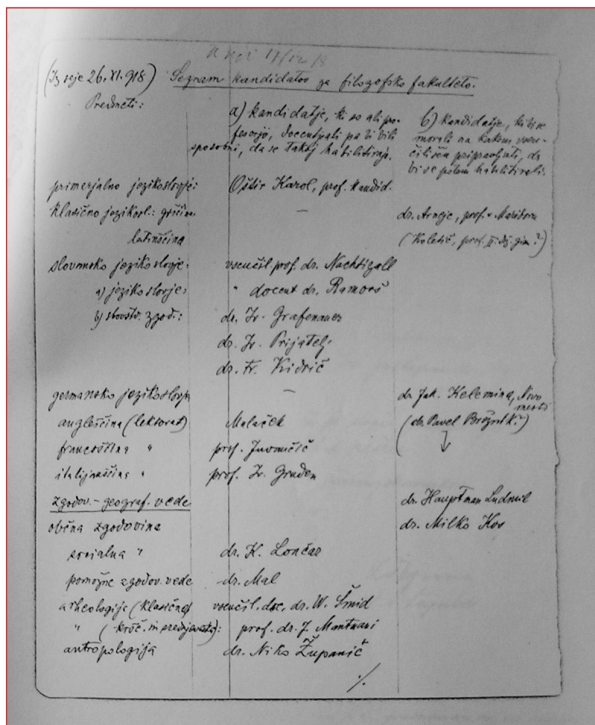 (Iz seje 26. XI. 918) Seznam kandidatov za filozofsko fakulteto.
Predmeti:
a) kandidatje, ki so ali pro-
fesorji, docenti, ali pa bi bili
sposobni, da se takoj habilitirajo.
b) kandidatje, ki bi se
morali na kakem vseu-
čilišču pripravljati, da
bi se potem habilitirali.
primerjalno jezikoslovje: Oštir Karol, prof. kandid.
klasično jezikosl.: grščina — dr. Arneje, prof. v Mariboru
latinščina
slovansko jezikoslovje: vseučil. prof. dr. Nachtigall
a) jezikoslovje: " docent dr. Ramovš
b) slovstv. zgod.: dr. Iv. Grafenauer
dr. Iv. Prijatelj
dr. Fr. Kidrič
germansko jezikoslovje — dr. Jak. Kelemina, Novo
mesto
angleščina (lektorat) (dr. Pavel
francoščina " prof.
italijanščina " prof. Iv. Gruden
zgodov.-geograf. vede dr. Hauptman Ludmil
občna zgodovina dr. Milko Kos
socialna " dr. K. Lončar
pomožne zgodov. vede dr. Mal
arheologije (klasična) vseučil. doc. dr. W. Šmid
prof. dr. J. Mantuani
antropologija dr. Niko Županič
./.